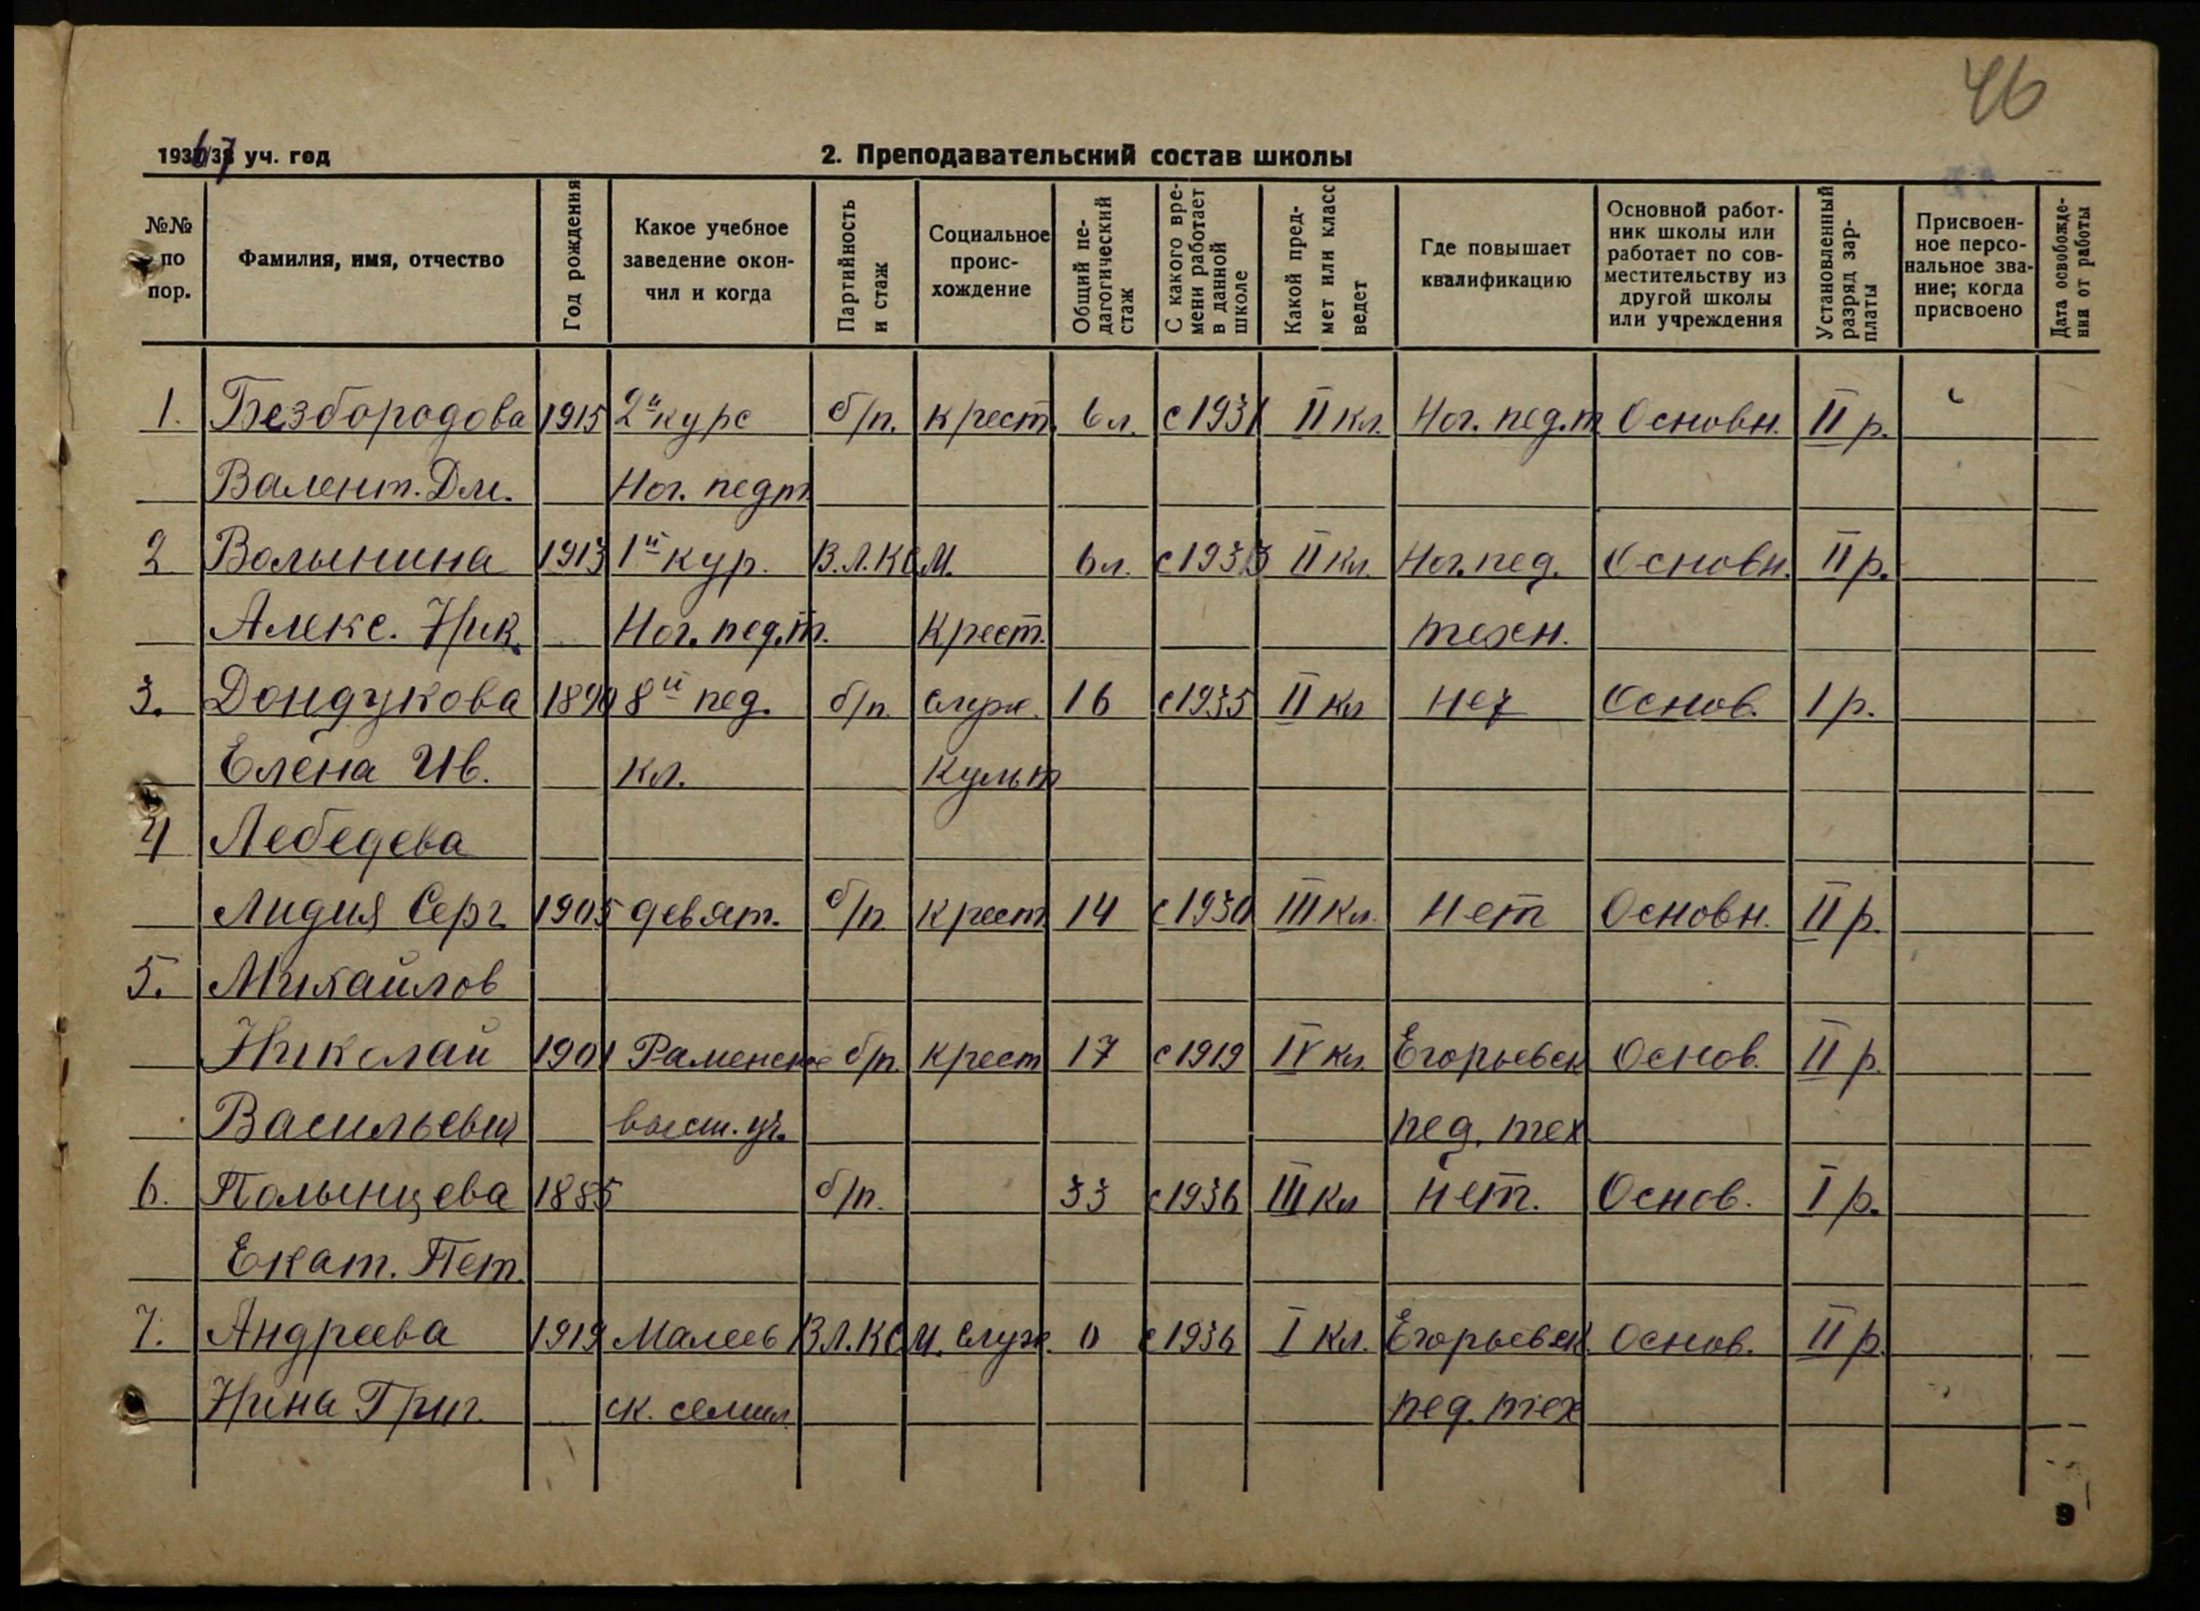 46
1936/37 уч. год 2. Преподавательский состав школы
№№ по пор. Фамилия, имя, отчество Год рождения Какое учебное заведение окончил и когда Партийность и стаж Социальное происхождение Общий педагогический стаж С какого времени работает в данной школе Какой предмет или класс ведет Где повышает квалификацию Основной работник школы или работает по совместительству из другой школы или учреждения Установленный разряд зарплаты Присвоенное персональное звание; когда присвоено Дата освобождения от работы
1. Безбородова 1915 2й курс б/п. крест. 6 л. с 1931 II кл. Ног. пед.т Основн. II р.
Валент. Дм. Ног. педт.
2 Волынина 1913 1й кур. В.Л.К.С.М. 6 л. с 1933 II кл. Ног. пед. Основн. II р.
Алекс. Ник. Ног. пед.т. Крест. техн.
3. Дондукова 1890 8й пед. б/п. служ. 16 с 1935 II кл Нет Основ. I р.
Елена Ив. кл. культ
4 Лебедева
Лидия Серг. 1905 девят. б/п. Крест 14 с 1930 III кл. Нет Основн. II р.
5. Михайлов
Николай 1901 Раменское б/п. крест 17 с 1919 IV кл. Егорьевск Основ. II р.
Васильевич высш. уч. пед. тех
6. Полынцева 1885 б/п. 33 с 1936 III кл нет. Основ. I р.
Екат. Пет.
7. Андреева 1919 Малеев ВЛ.К.С.М. служ. 0 с 1936 I кл. Егорьевск. Основ. II р.
Нина Григ. ск. семил. пед. тех
9